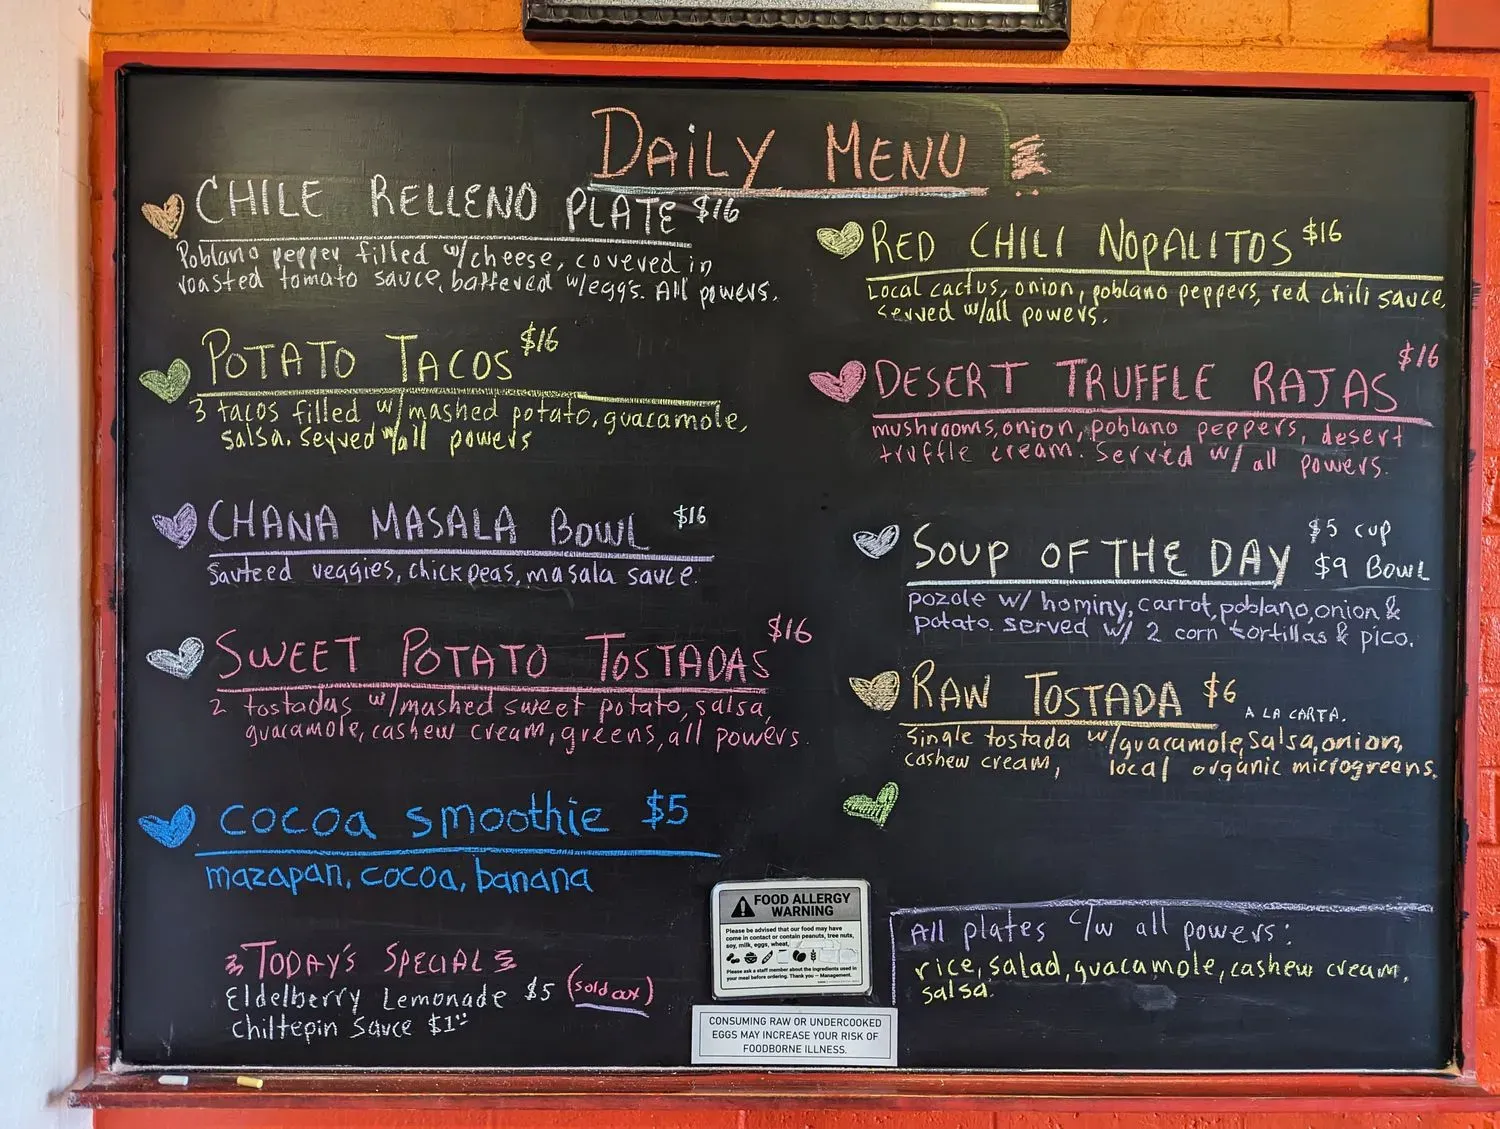 DAILY MENU
CHILE RELLENO PLATE $16
Poblano pepper filled w/cheese, covered in
roasted tomato sauce, battered w/eggs. All powers.
POTATO TACOS $16
3 tacos filled w/mashed potato, guacamole,
salsa. Served w/all powers
CHANA MASALA BOWL $16
Sauteed veggies, chickpeas, masala sauce.
SWEET POTATO TOSTADAS $16
2 tostadas w/mashed sweet potato, salsa,
guacamole, cashew cream, greens, all powers.
cocoa smoothie $5
mazapan, cocoa, banana
TODAY'S SPECIAL
Eldelberry Lemonade $5 (sold out)
Chiltepin Sauce $1
RED CHILI NOPALITOS $16
Local cactus, onion, poblano peppers, red chili sauce,
served w/all powers.
DESERT TRUFFLE RAJAS $16
mushrooms, onion, poblano peppers, desert
truffle cream. Served w/ all powers.
SOUP OF THE DAY $5 cup
$9 Bowl
pozole w/ hominy, carrot, poblano, onion &
potato. served w/ 2 corn tortillas & pico.
RAW TOSTADA $6
A LA CARTA.
Single tostada w/guacamole, salsa, onion,
cashew cream, local organic microgreens.
All plates c/w all powers:
rice, salad, guacamole, cashew cream,
salsa.
FOOD ALLERGY
WARNING
Please be advised that our food may have
come in contact or contain peanuts, tree nuts,
soy, milk, eggs, wheat,
Please ask a staff member about the ingredients used in
your meal before ordering. Thank you – Management.
CONSUMING RAW OR UNDERCOOKED
EGGS MAY INCREASE YOUR RISK OF
FOODBORNE ILLNESS.